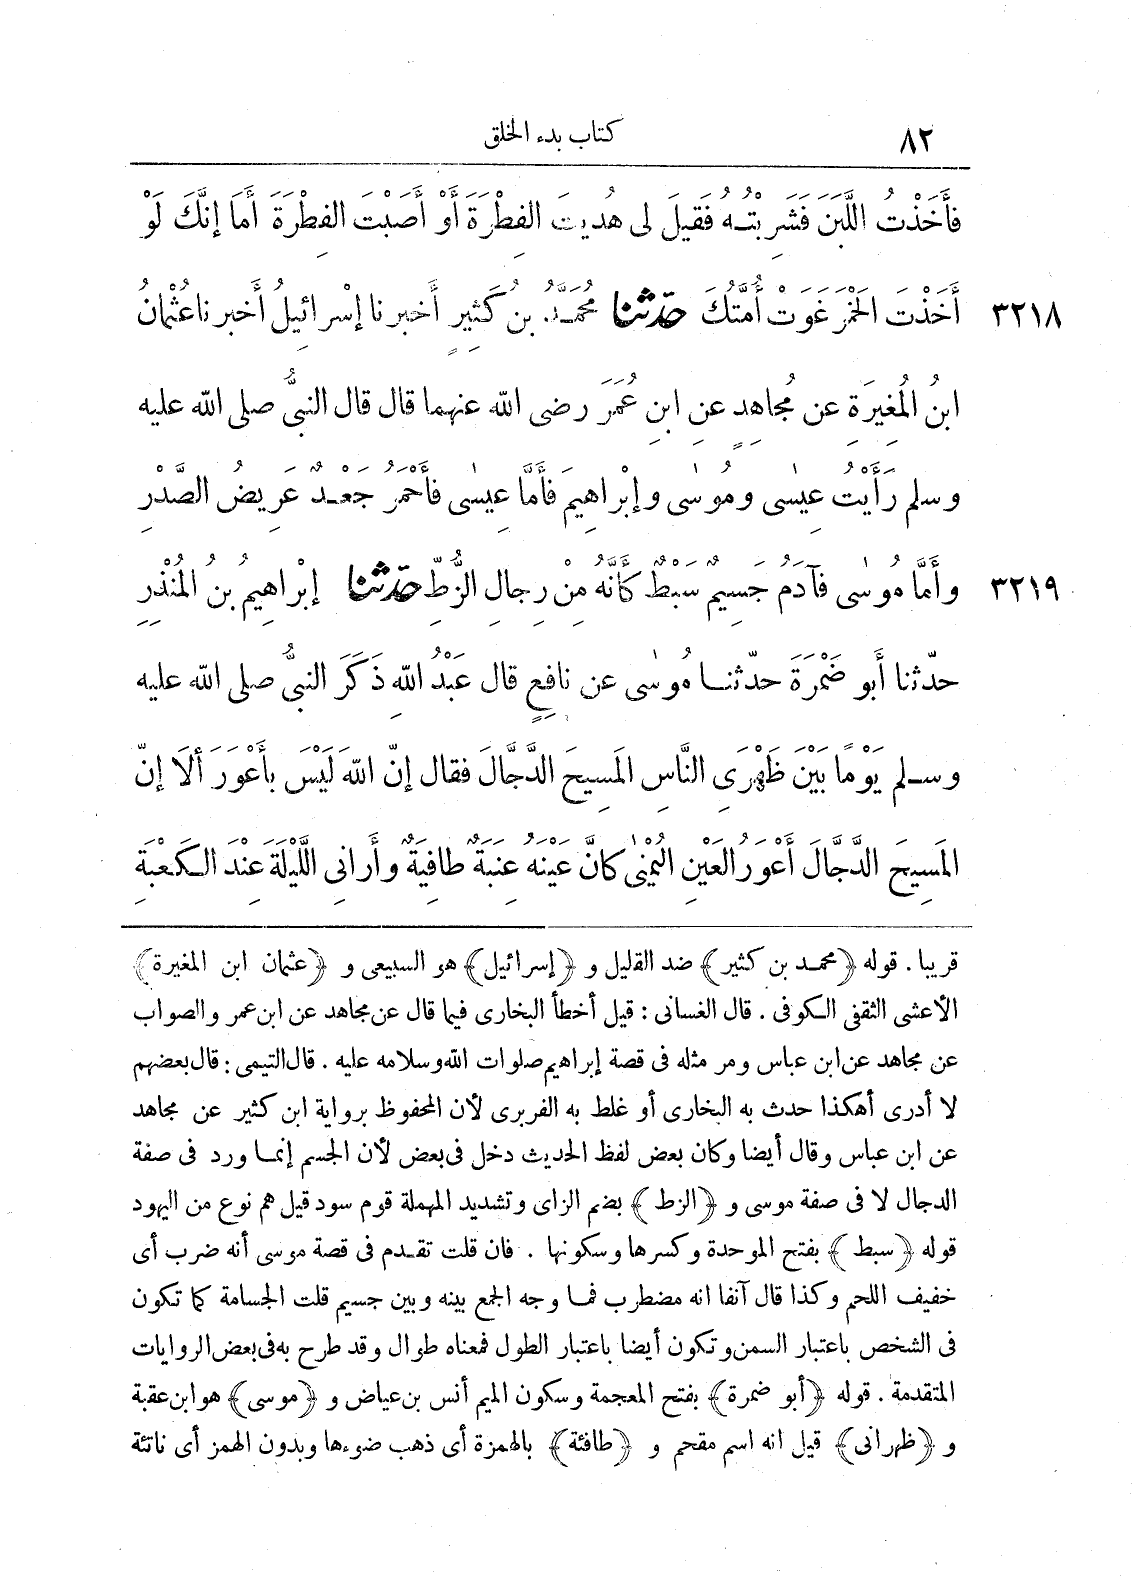 ٨٢
كتاب بدء الخلق
فَأَخَذْتُ اللَّبَنَ فَشَرِبْتُهُ فَقِيلَ لى هُدِيتَ الفِطْرَةَ أَوْ أَصَبْتَ الفِطْرَةَ أَمَا إنَّكَ لَوْ
٣٢١٨ أَخَذْتَ الخَمْرَ غَوَتْ أُمَّتُكَ حدّثنا مُحَمَّدُ بن كَثيرٍ أَخبرنا إسْرائيلُ أَخبرنا عُثْمانُ
ابنُ المُغِيرَةِ عن مُجاهِدٍ عنِ ابنِ عُمَرَ رضى الله عنهما قال قال النبىُّ صلى الله عليه
وسلم رَأَيْتُ عِيسٰى ومُوسٰى وإبْراهِيمَ فأَمَّا عِيسٰى فأَحْمَرُ جَعْدٌ عَرِيضُ الصَّدْرِ
٣٢١٩ وأَمَّا مُوسٰى فآدَمُ جَسِيمٌ سَبْطٌ كَأَنَّهُ مِنْ رِجالِ الزُّطِّ حدّثنا إبْراهِيمُ بنُ المُنْذِرِ
حدّثنا أَبو ضَمْرَةَ حدّثنا مُوسٰى عن نافِعٍ قال عَبْدُ اللهِ ذَكَرَ النبىُّ صلى الله عليه
وسلم يَوْمًا بَيْنَ ظَهْرَىِ النَّاسِ المَسِيحَ الدَّجَّالَ فقال إنّ اللهَ لَيْسَ بِأَعْوَرَ أَلَا إنّ
المَسِيحَ الدَّجَّالَ أَعْوَرُ العَيْنِ اليُمْنٰى كانَّ عَيْنَهُ عِنَبَةٌ طافِيَةٌ وأَرانِى اللَّيْلَةَ عِنْدَ الكَعْبَةِ
قريبا . قوله ﴿محمد بن كثير﴾ ضد القليل و ﴿إسرائيل﴾ هو السبيعى و ﴿عثمان ابن المغيرة﴾
الأعشى الثقفى الكوفى . قال الغسانى : قيل أخطأ البخارى فيما قال عن مجاهد عن ابن عمر والصواب
عن مجاهد عن ابن عباس ومر مثله فى قصة إبراهيم صلوات الله وسلامه عليه . قال التيمى : قال بعضهم
لا أدرى أهكذا حدث به البخارى أو غلط به الفربرى لأن المحفوظ برواية ابن كثير عن مجاهد
عن ابن عباس وقال أيضا وكان بعض لفظ الحديث دخل فى بعض لأن الجسم إنما ورد فى صفة
الدجال لا فى صفة موسى و ﴿الزط﴾ بضم الزاى وتشديد المهملة قوم سود قيل هم نوع من اليهود
قوله ﴿سبط﴾ بفتح الموحدة وكسرها وسكونها . فان قلت تقدم فى قصة موسى أنه ضرب أى
خفيف اللحم وكذا قال آنفا انه مضطرب فما وجه الجمع بينه وبين جسيم قلت الجسامة كما تكون
فى الشخص باعتبار السمن وتكون أيضا باعتبار الطول فمعناه طوال وقد طرح به فى بعض الروايات
المتقدمة . قوله ﴿أبو ضمرة﴾ بفتح المعجمة وسكون الميم أنس بن عياض و ﴿موسى﴾ هو ابن عقبة
و ﴿ظهرانى﴾ قيل انه اسم مقحم و ﴿طافئة﴾ بالهمزة أى ذهب ضوءها وبدون الهمز أى ناتئة